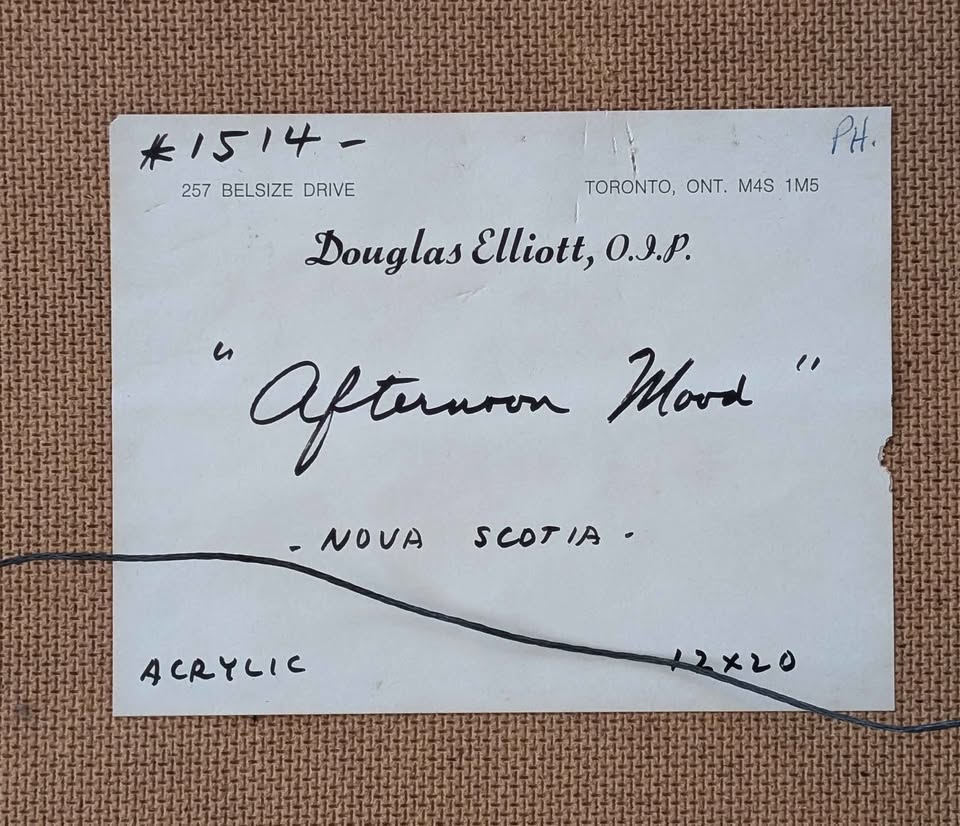 #1514- PH.
257 BELSIZE DRIVE TORONTO, ONT. M4S 1M5
Douglas Elliott, O.I.P.
"Afternoon Mood"
- NOVA SCOTIA -
ACRYLIC 12x20